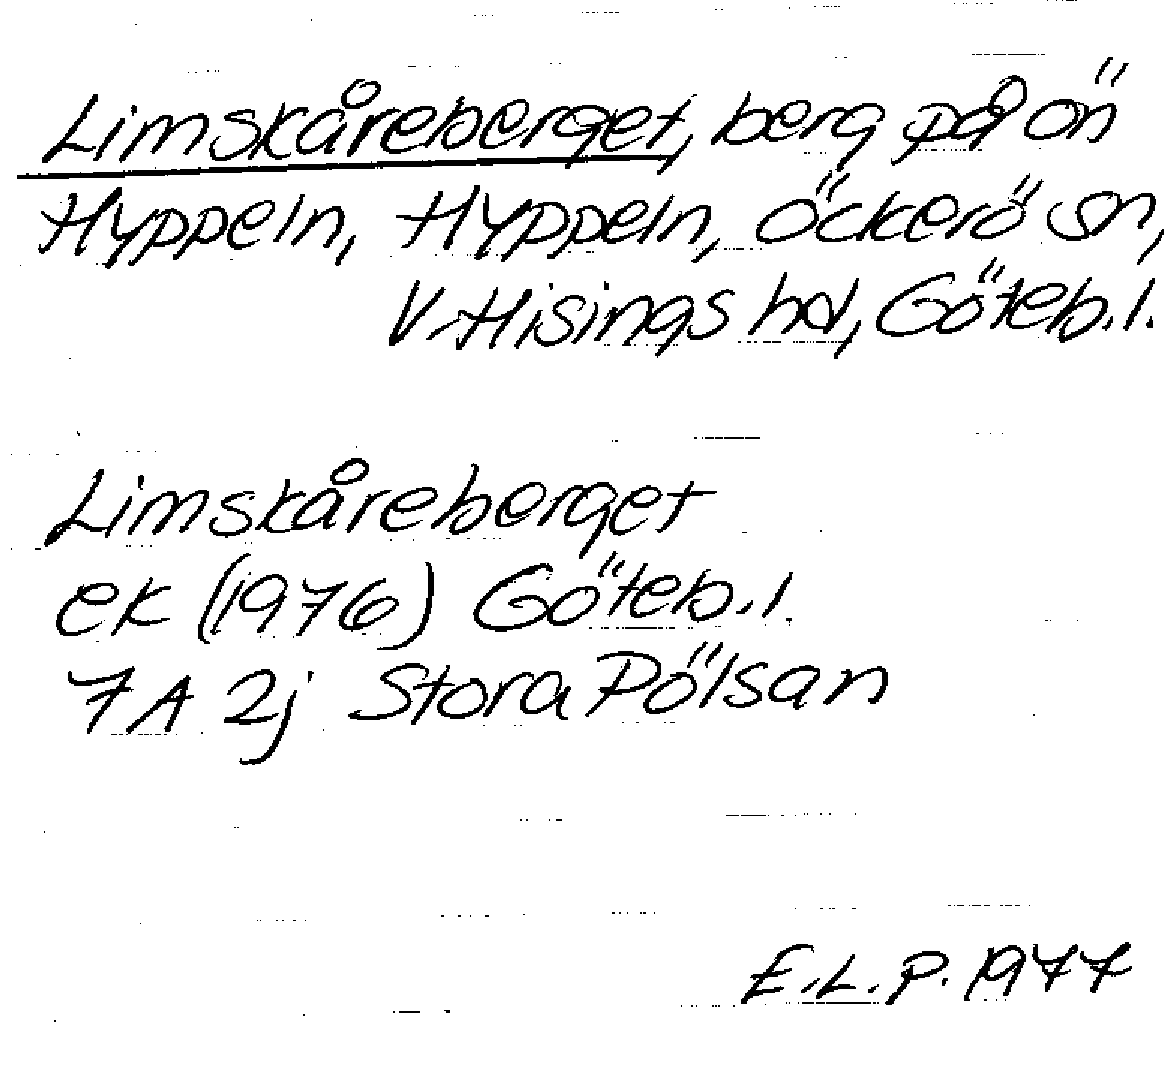 Limskåreberget, berg på ön
Hyppeln, Hyppeln, Öckerö sn,
V. Hisings hd, Göteb. l.
Limskåreberget
ek (1976) Göteb. l.
7A 2j Stora Pölsan
E. L. P. 1977